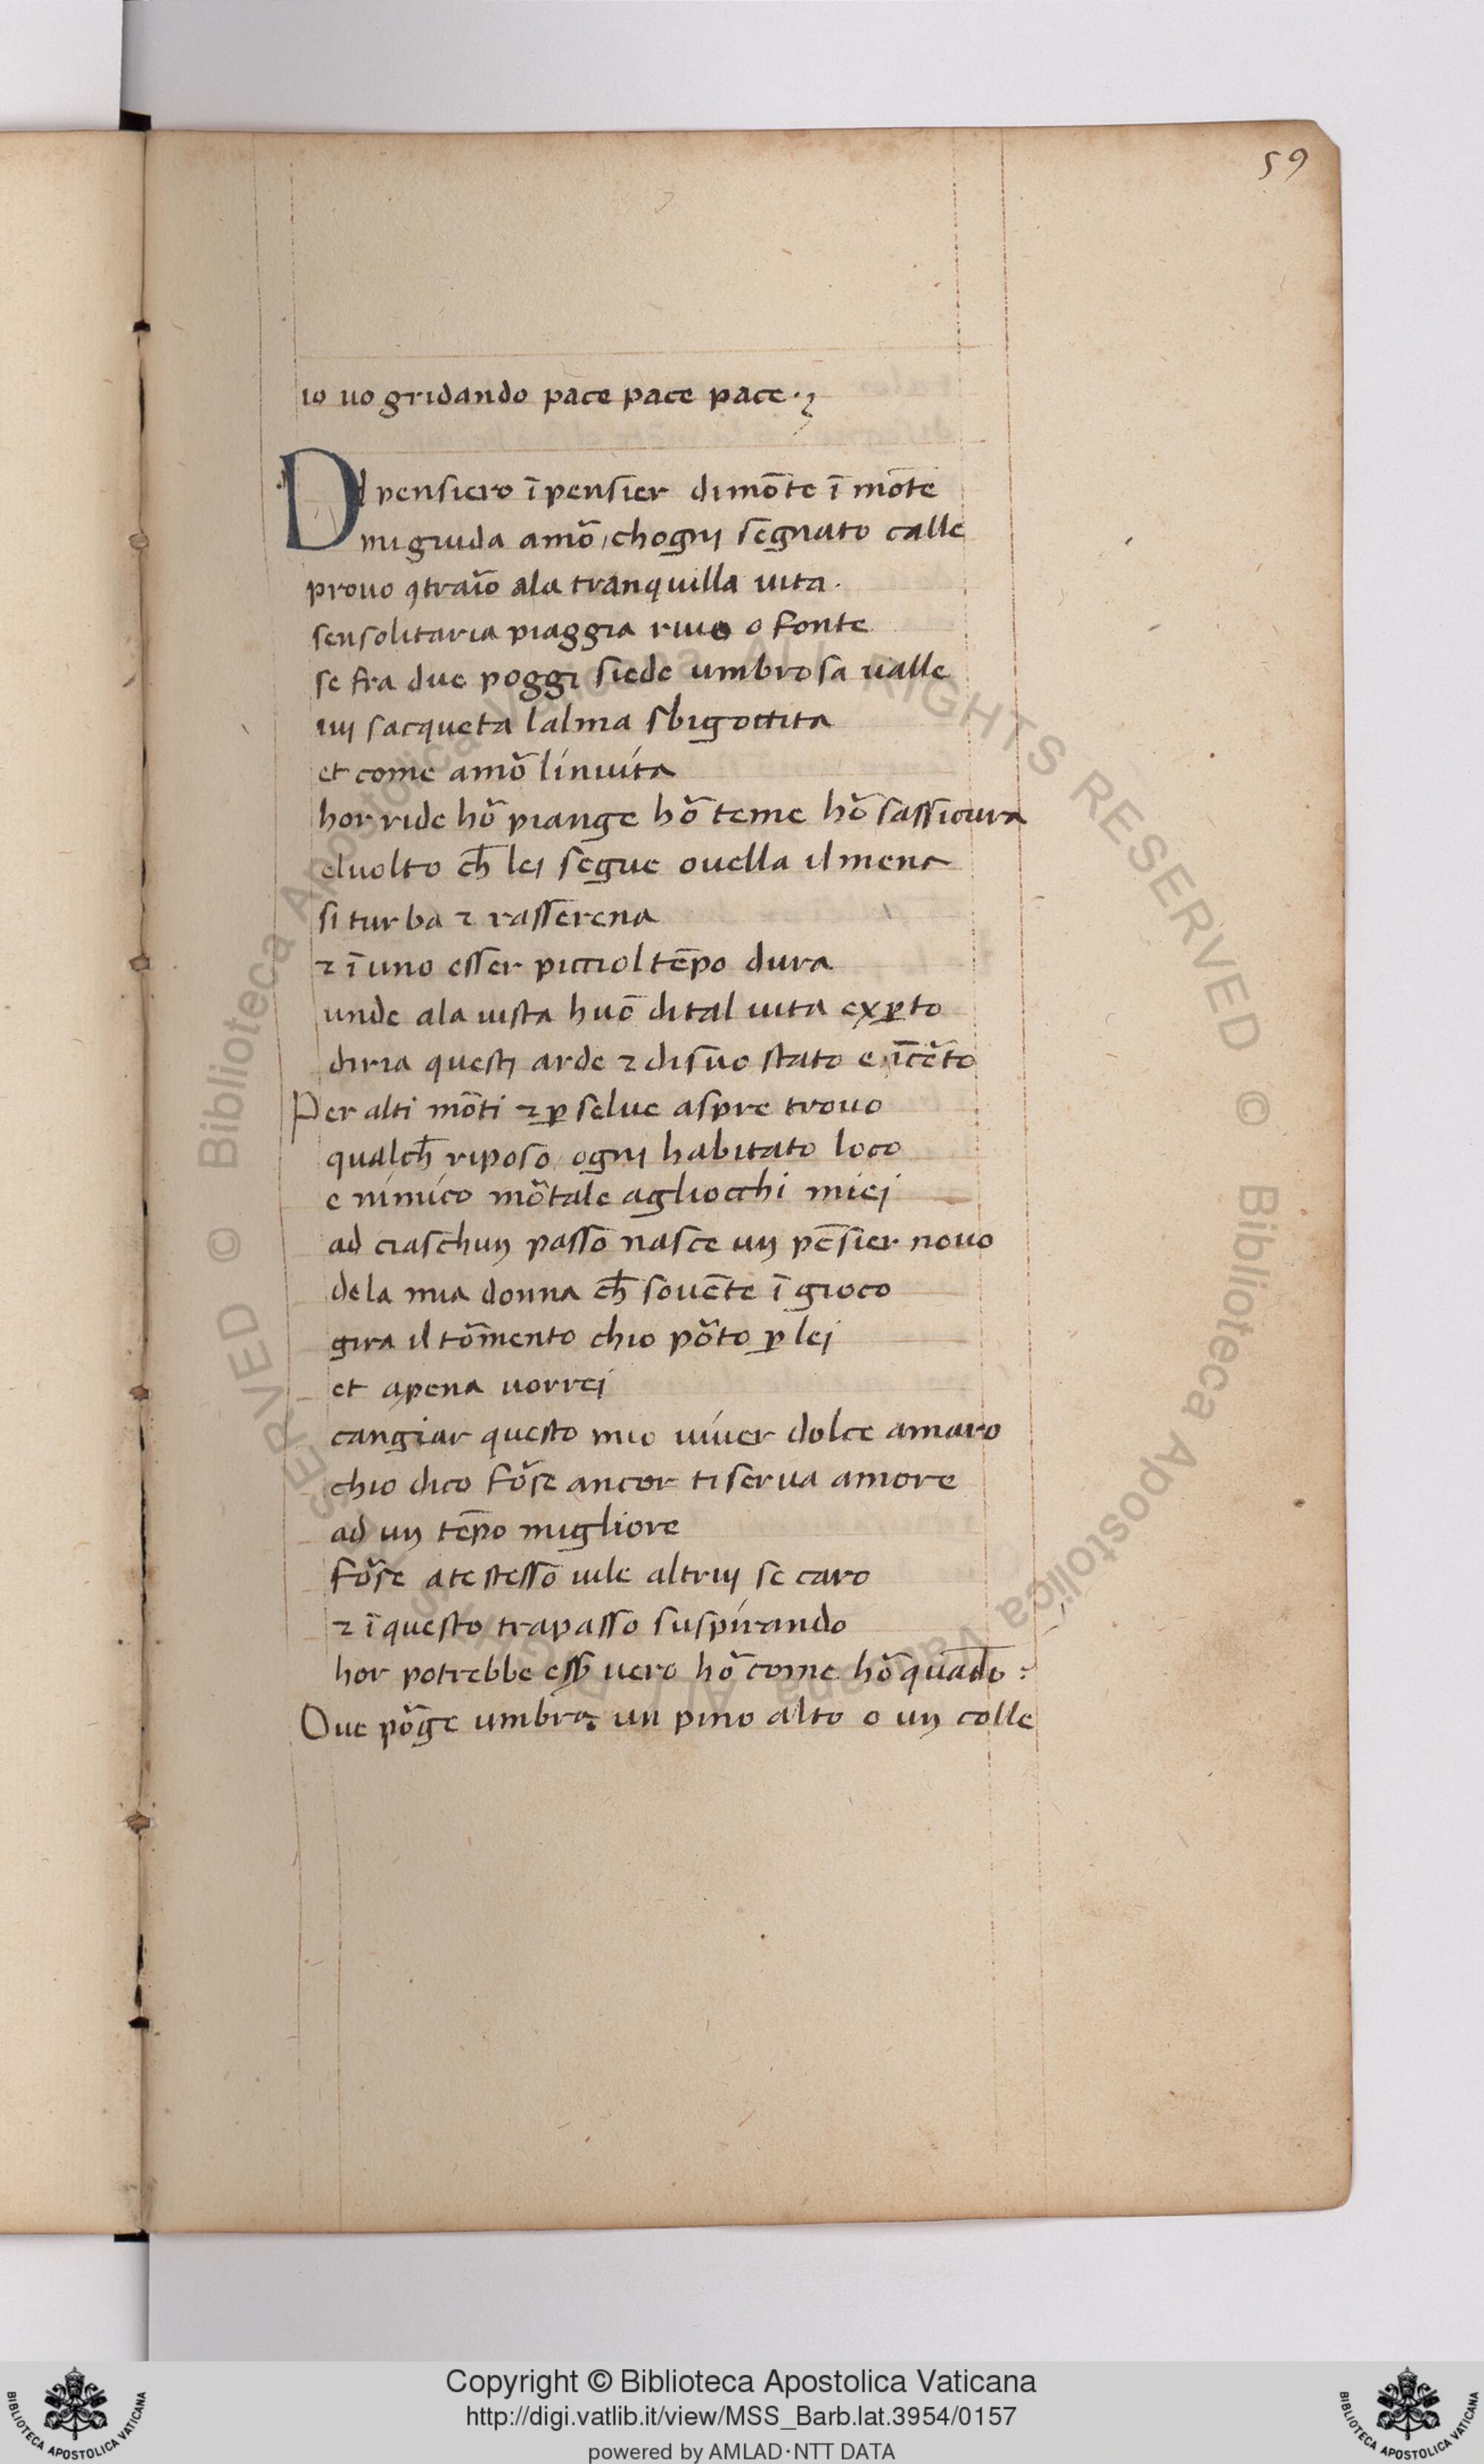 59
io uo gridando pace pace pace.
DI pensiero ī pensier dimōte ī mōte
miguida amō chogni segnato calle
prouo ꝯtraīo ala tranquilla uita.
sensolitaria piaggia riuo o fonte
se fra due poggi siede umbrosa ualle
iui sacqueta lalma sbigottita
et come amō linuita
hor ride hō piange hō teme hō sassicura
eluolto ch̄ lei segue ouella il mena
si turba ⁊ rasserena
⁊ ī uno esser picciol tēpo dura
unde ala uista huō dital uita exꝑto
diria questi arde ⁊ disuo stato e īcēto
Per alti mōti ⁊ ꝑ selue aspre trouo
qualch̄ riposo ogni habitato loco
e nimico mōtale agliocchi miei
ad ciaschun passo nasce un pēsier nouo
dela mia donna ch̄ souēte ī gioco
gira il tōmento chio pōto ꝑ lei
et apena uorrei
cangiar questo mio uiuer dolce amaro
chio dico fōse ancor ti serua amore
ad un tēpo migliore
fōse a te stesso uile altrui se caro
⁊ ī questo trapasso suspirando
hor potrebbe ess̄ uero hō come hō quādo :
Oue pōge umbra un pino alto o un colle
Copyright © Biblioteca Apostolica Vaticana
http://digi.vatlib.it/view/MSS_Barb.lat.3954/0157
powered by AMLAD·NTT DATA
BIBLIOTECA APOSTOLICA VATICANA
BIBLIOTECA APOSTOLICA VATICANA
Biblioteca Apostolica Vaticana ALL RIGHTS RESERVED © Biblioteca Apostolica Vaticana ALL RIGHTS RESERVED ©